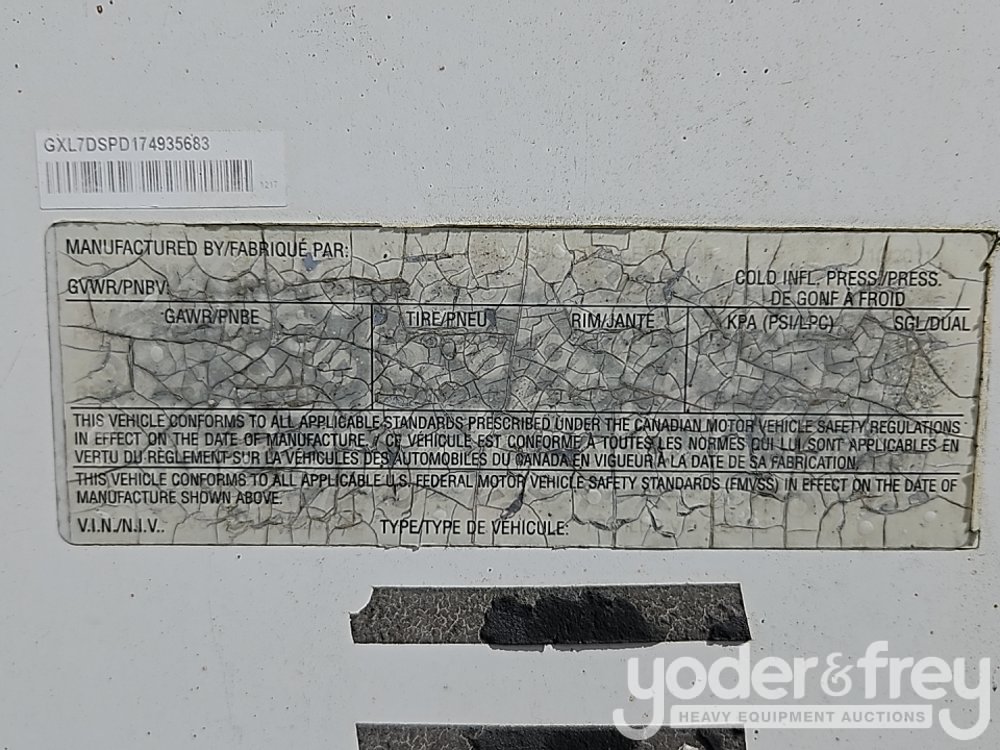 GXL7DSPD174935683
1217
MANUFACTURED BY/FABRIQUÉ PAR:
GVWR/PNBV:
COLD INFL. PRESS./PRESS.
DE GONF À FROID
GAWR/PNBE TIRE/PNEU RIM/JANTE KPA (PSI/LPC) SGL/DUAL
THIS VEHICLE CONFORMS TO ALL APPLICABLE STANDARDS PRESCRIBED UNDER THE CANADIAN MOTOR VEHICLE SAFETY REGULATIONS
IN EFFECT ON THE DATE OF MANUFACTURE. / CE VÉHICULE EST CONFORME À TOUTES LES NORMES QUI LUI SONT APPLICABLES EN
VERTU DU RÈGLEMENT SUR LA VÉHICULES DES AUTOMOBILES DU CANADA EN VIGUEUR À LA DATE DE SA FABRICATION.
THIS VEHICLE CONFORMS TO ALL APPLICABLE U.S. FEDERAL MOTOR VEHICLE SAFETY STANDARDS (FMVSS) IN EFFECT ON THE DATE OF
MANUFACTURE SHOWN ABOVE.
V.I.N./N.I.V.: TYPE/TYPE DE VÉHICULE:
yoder&frey
HEAVY EQUIPMENT AUCTIONS